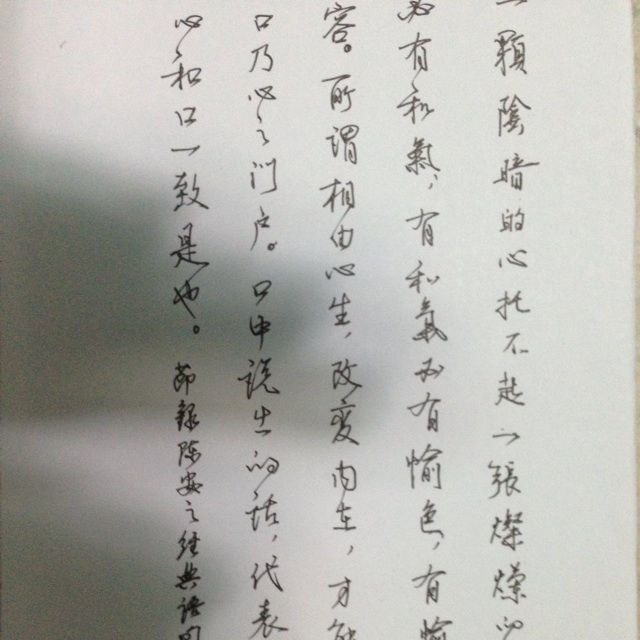 一顆陰暗的心托不起一張燦爛
必有和氣，有和氣必有愉色，有愉
容。所謂相由心生，改变内在，才能
口乃心之门户。口中说出的话，代表
心和口一致是也。节録陈安之经典语句